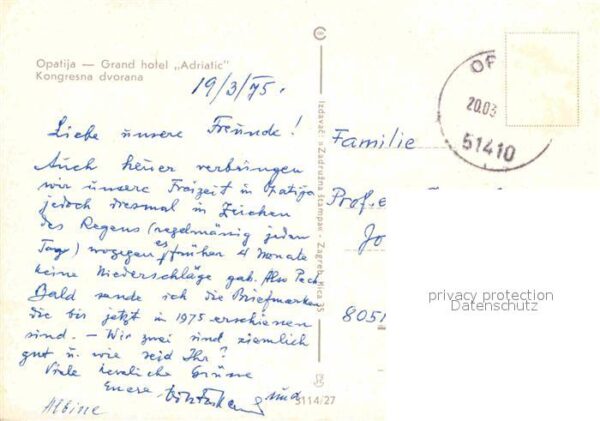 Opatija — Grand hotel „Adriatic"
Kongresna dvorana
19/3/75.
Liebe unsere Freunde!
Auch heuer verbringen
wir unsere Freizeit in Opatija
jedoch diesmal in Zeichen
des Regens (regelmässig jeden
Tag) wogegen es früher 4 Monate
keine Niederschläge gab. Also Pech
Bald sende ich die Briefmarken
die bis jetzt in 1975 erschienen
sind. – Wir zwei sind ziemlich
gut u. wie seid Ihr?
Viele herzliche Grüsse
Euere und
Albine
Izdavač: »Zadružna štampa« - Zagreb,
3114/27
OP
20.03
51410
Familie
Prof.
Jo
8051
privacy protection
Datenschutz